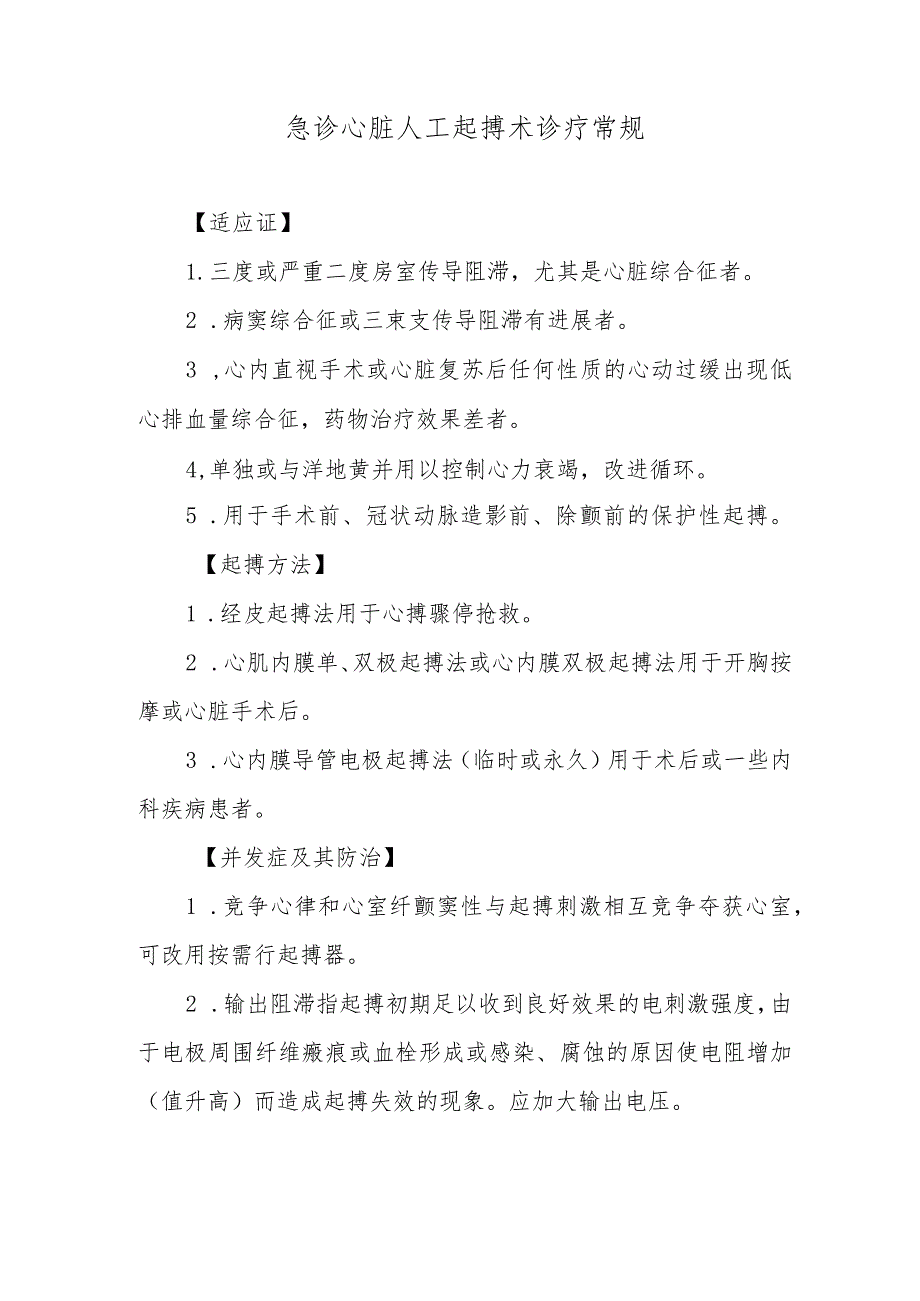 急诊心脏人工起搏术诊疗常规
【适应证】
1.三度或严重二度房室传导阻滞，尤其是心脏综合征者。
2 .病窦综合征或三束支传导阻滞有进展者。
3 ,心内直视手术或心脏复苏后任何性质的心动过缓出现低
心排血量综合征，药物治疗效果差者。
4,单独或与洋地黄并用以控制心力衰竭，改进循环。
5 .用于手术前、冠状动脉造影前、除颤前的保护性起搏。
【起搏方法】
1 .经皮起搏法用于心搏骤停抢救。
2 .心肌内膜单、双极起搏法或心内膜双极起搏法用于开胸按
摩或心脏手术后。
3 .心内膜导管电极起搏法（临时或永久）用于术后或一些内
科疾病患者。
【并发症及其防治】
1 .竞争心律和心室纤颤窦性与起搏刺激相互竞争夺获心室，
可改用按需行起搏器。
2 .输出阻滞指起搏初期足以收到良好效果的电刺激强度，由
于电极周围纤维瘢痕或血栓形成或感染、腐蚀的原因使电阻增加
（值升高）而造成起搏失效的现象。应加大输出电压。